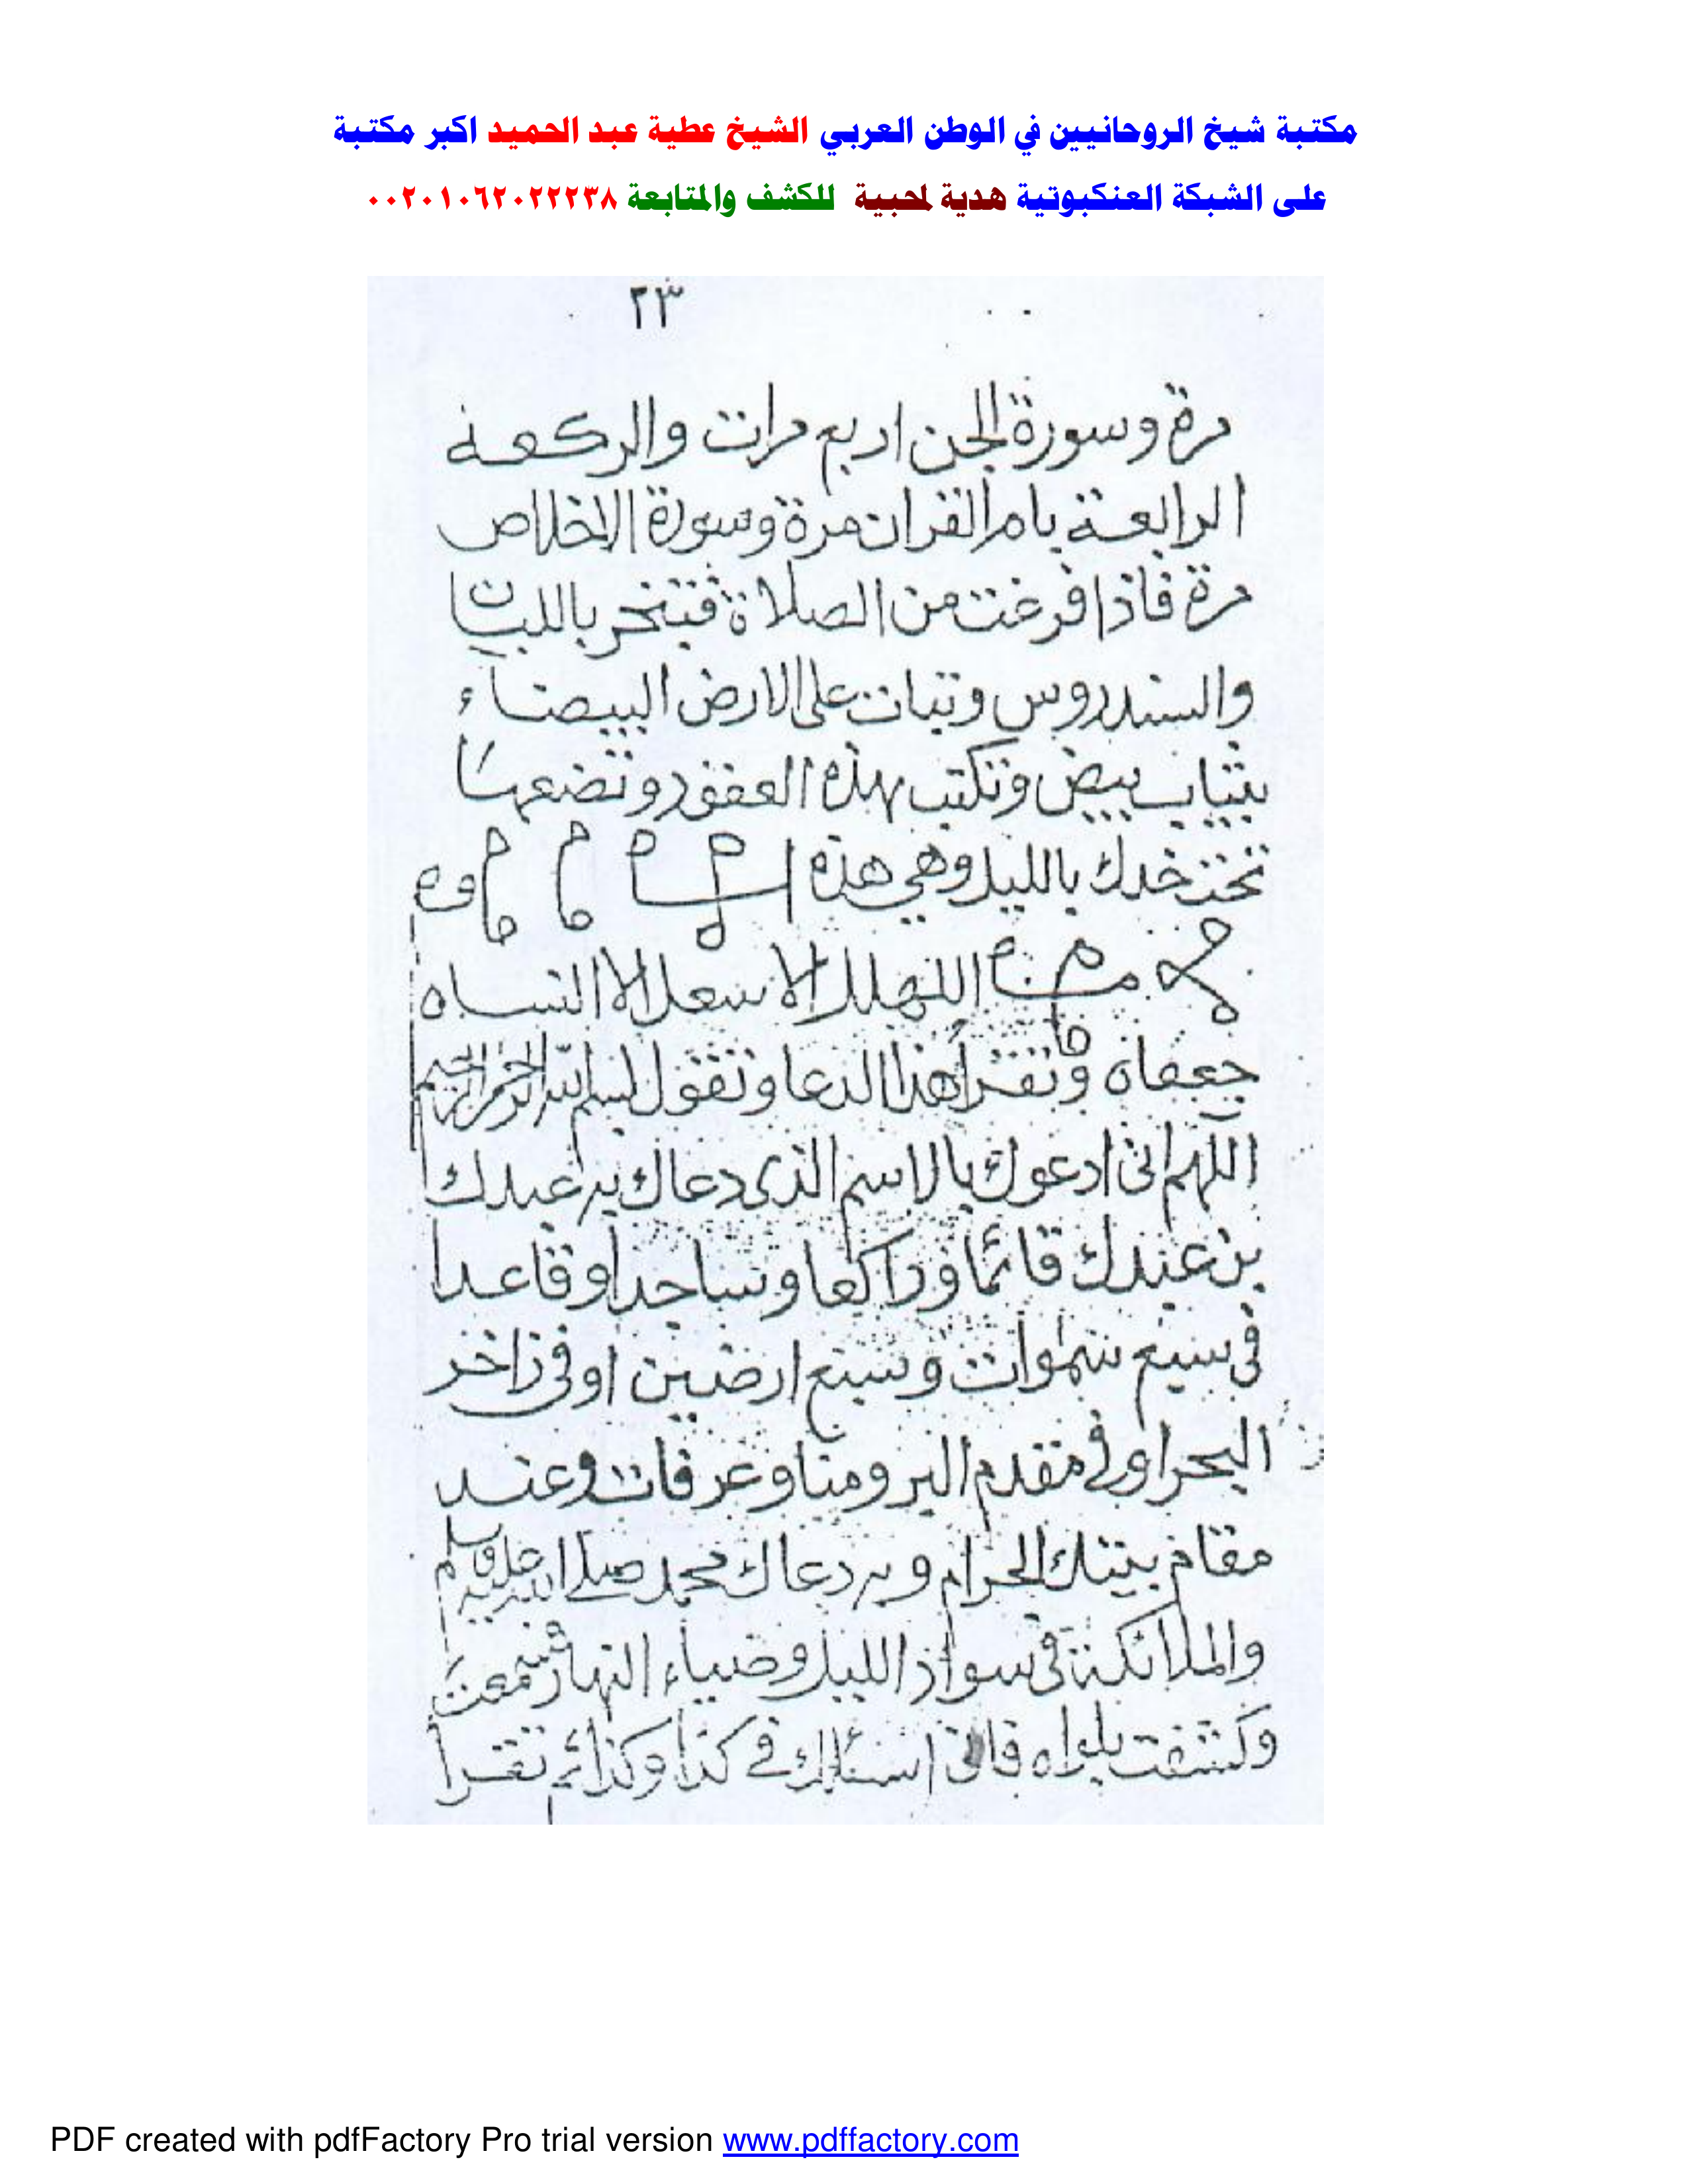 مكتبة شيخ الروحانيين في الوطن العربي الشيخ عطية عبد الحميد اكبر مكتبة
على الشبكة العنكبوتية هدية لمحبية للكشف والمتابعة ٠٠٢٠١٠٦٢٠٢٢٢٣٨
٢٣
مرة وسورة الجن اربع مرات والركعة
الرابعة بام القران مرة وسورة الاخلاص
مرة فاذا فرغت من الصلاة فتبخر باللبان
والسندروس وتبات على الارض البيضاء
بثياب بيض وتكتب بهذه وتضعها
تحت خدك بالليل وهي هذه
جعفاه وتقرا هذا الدعا وتقول بسم الله الرحمن الرحيم
اللهم انى ادعوك بالاسم الذى دعاك به عبدك
عندك قائما وراكعا وساجدا وقاعدا
فى سبع سموات وسبع ارضين او فى زاخر
البحر او فى مقدم البر ومنا وعرفات وعند
مقام بيتك الحرام وبه دعاك محمد صلى الله عليه وسلم
والملائكة فى سواد الليل وضياء النهار سمعت
وكشفت بلواه فانى اسئلك فى كذا وكذا ثم تقرا
PDF created with pdfFactory Pro trial version www.pdffactory.com